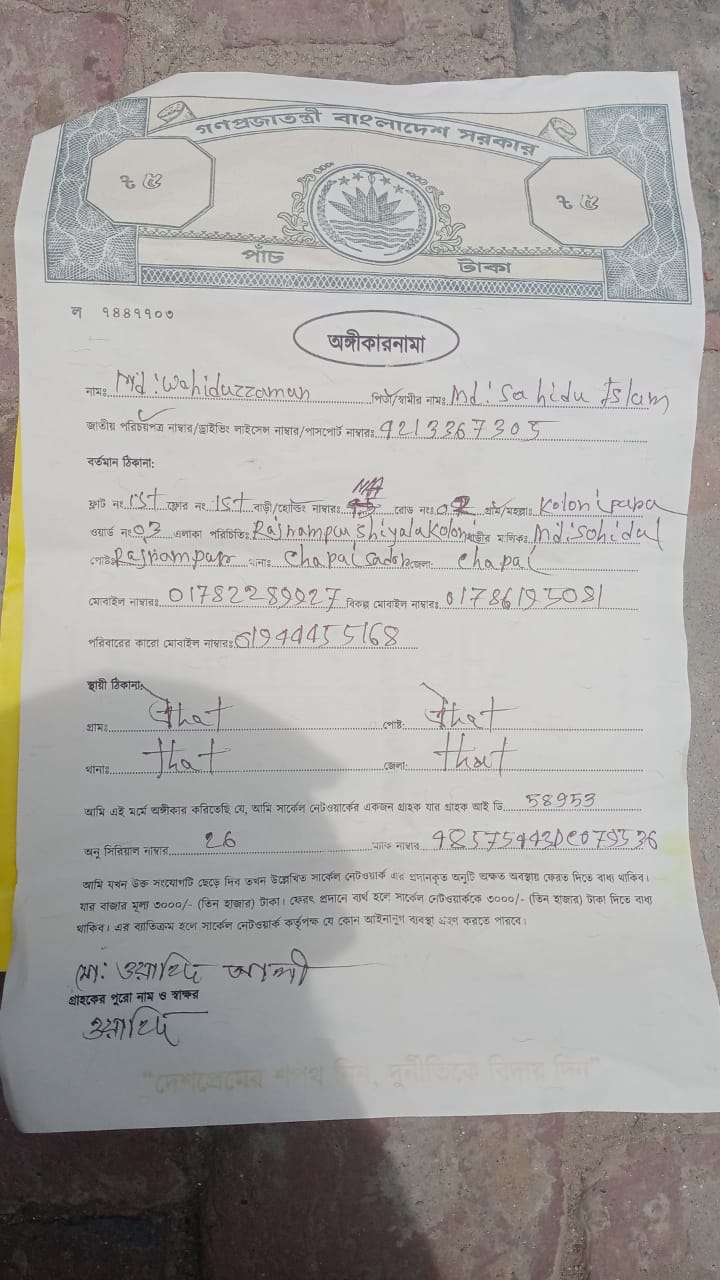 গণপ্রজাতন্ত্রী বাংলাদেশ সরকার
৳ ৫ ৳ ৫
পাঁচ টাকা
ল ৭৪৪৭৭০৩
অঙ্গীকারনামা
নামঃ Md: Wahiduzzaman পিতা/স্বামীর নামঃ Md: Sahidu Islam
জাতীয় পরিচয়পত্র নাম্বার/ড্রাইভিং লাইসেন্স নাম্বার/পাসপোর্ট নাম্বারঃ 4213367305
বর্তমান ঠিকানা:
ফ্লাট নং 1st ফ্লোর নং 1st বাড়ী/হোল্ডিং নাম্বারঃ N/A রোড নংঃ 02 গ্রাম/মহল্লাঃ Kolonipara
ওয়ার্ড নং 03 এলাকা পরিচিতিঃ Rajrampur Shiyalakoloni বাড়ীর মালিকঃ Md: Sohidul
পোষ্টঃ Rajrampur থানাঃ Chapai Sador জেলা: Chapai
মোবাইল নাম্বারঃ 01782289927 বিকল্প মোবাইল নাম্বারঃ 01786195081
পরিবারের কারো মোবাইল নাম্বারঃ 01944455168
স্থায়ী ঠিকানা:
গ্রামঃ that পোষ্ট: that
থানাঃ that জেলা: that
আমি এই মর্মে অঙ্গীকার করিতেছি যে, আমি সার্কেল নেটওয়ার্কের একজন গ্রাহক যার গ্রাহক আই ডি 58953
অনু সিরিয়াল নাম্বার 26 ম্যাক নাম্বার 48575443DC079536
আমি যখন উক্ত সংযোগটি ছেড়ে দিব তখন উল্লেখিত সার্কেল নেটওয়ার্ক এর প্রদানকৃত অনুটি অক্ষত অবস্থায় ফেরত দিতে বাধ্য থাকিব।
যার বাজার মূল্য ৩০০০/- (তিন হাজার) টাকা। ফেরৎ প্রদানে ব্যর্থ হলে সার্কেল নেটওয়ার্ককে ৩০০০/- (তিন হাজার) টাকা দিতে বাধ্য
থাকিব। এর ব্যতিক্রম হলে সার্কেল নেটওয়ার্ক কর্তৃপক্ষ যে কোন আইনানুগ ব্যবস্থা গ্রহণ করতে পারবে।
মো: ওয়াহিদ আলী
গ্রাহকের পুরো নাম ও স্বাক্ষর
ওয়াহিদ
"দেশপ্রেমের শপথ নিন, দুর্নীতিকে বিদায় দিন"